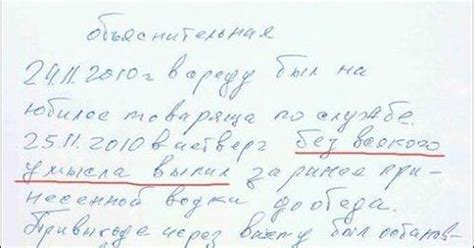 объяснительная
24.11.2010 г в среду был на
юбилее товарища по службе.
25.11.2010 в четверг без всякого
умысла выпил за ранее при-
несенной водки до обеда.
При выходе через вахту был останов-